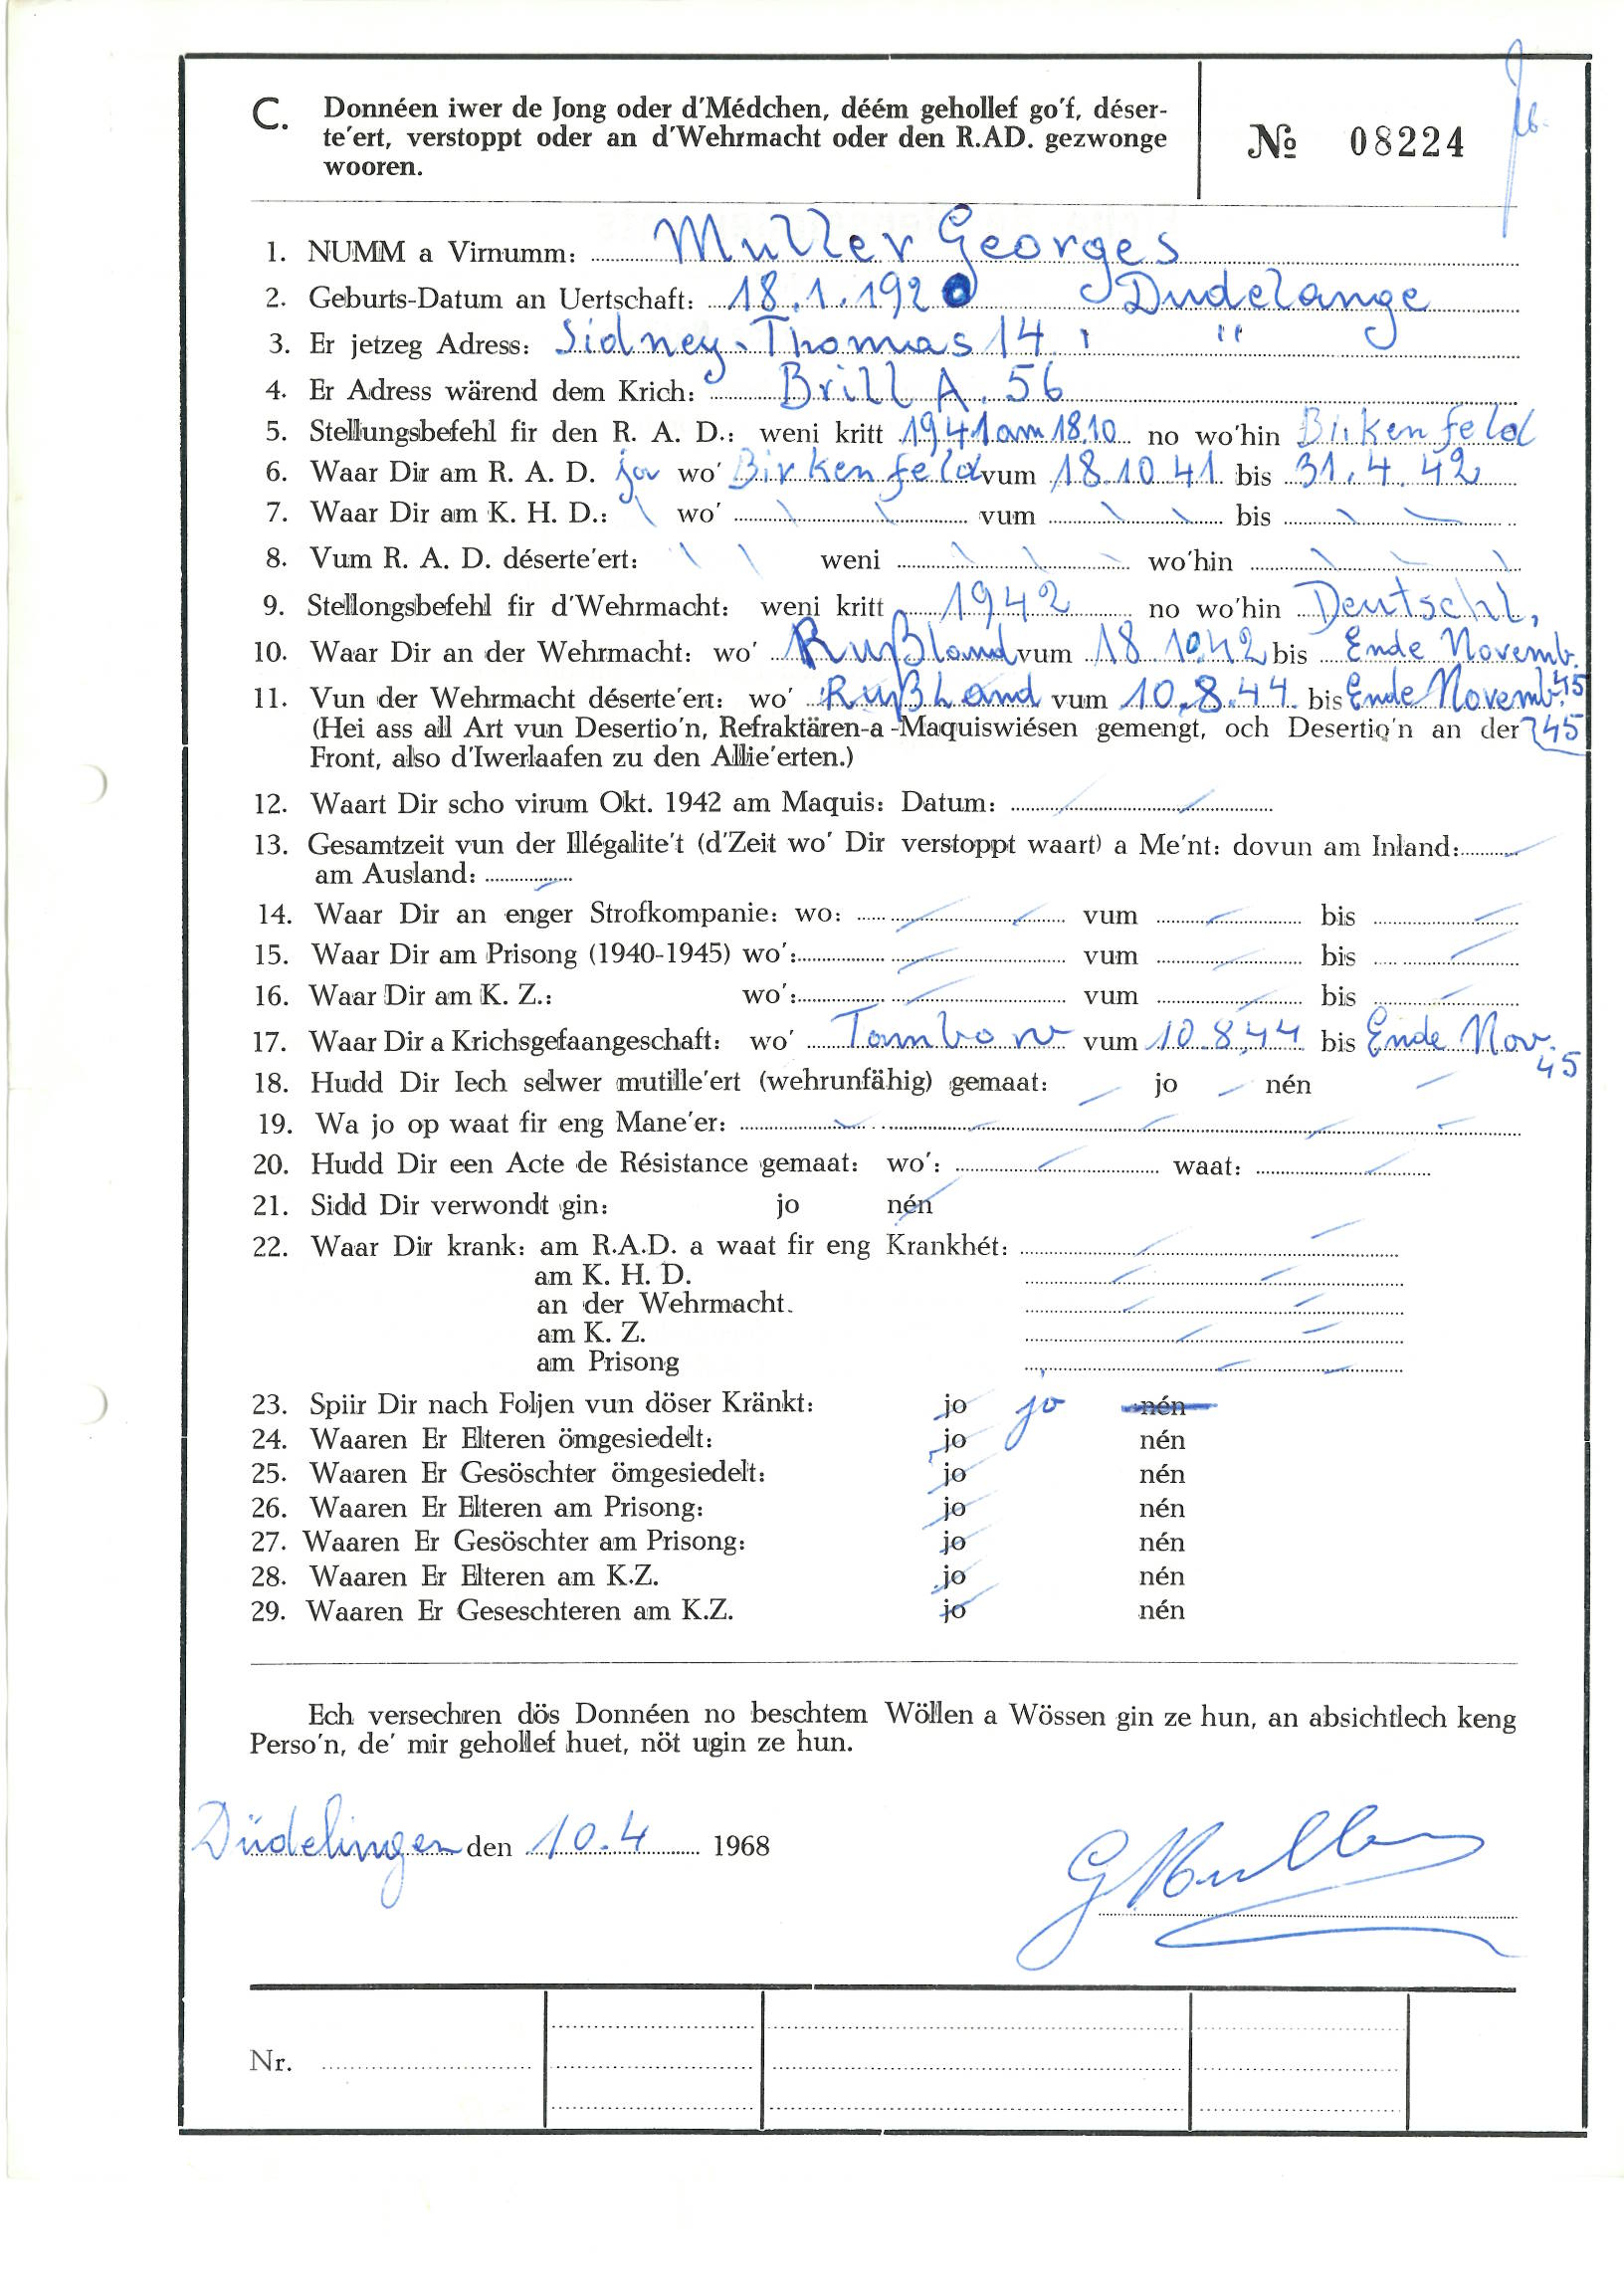 C. Donnéen iwer de Jong oder d'Médchen, déém gehollef go'f, déser-
te'ert, verstoppt oder an d'Wehrmacht oder den R.AD. gezwonge
wooren.
№ 08224
1. NUMM a Virnumm: Muller Georges
2. Geburts-Datum an Uertschaft: 18.1.1920 Dudelange
3. Er jetzeg Adress: Sidney-Thomas 14, "
4. Er Adress wärend dem Krich: Brill A. 56
5. Stellungsbefehl fir den R. A. D.: weni kritt 1941 am 18.10 no wo'hin Birkenfeld
6. Waar Dir am R. A. D. ja wo' Birkenfeld vum 18.10 41 bis 31.4.42
7. Waar Dir am K. H. D.: wo' vum bis
8. Vum R. A. D. déserte'ert: weni wo'hin
9. Stellongsbefehl fir d'Wehrmacht: weni kritt 1942 no wo'hin Deutschl,
10. Waar Dir an der Wehrmacht: wo' Rußland vum 18.10.42 bis Ende Novemb. 45
11. Vun der Wehrmacht déserte'ert: wo' Rußland vum 10.8.44 bis Ende Novemb.
(Hei ass all Art vun Desertio'n, Refraktären-a -Maquiswiésen gemengt, och Desertio'n an der 45
Front, also d'Iwerlaafen zu den Allie'erten.)
12. Waart Dir scho virum Okt. 1942 am Maquis: Datum:
13. Gesamtzeit vun der Illégalite't (d'Zeit wo' Dir verstoppt waart) a Me'nt: dovun am Inland:
am Ausland:
14. Waar Dir an enger Strofkompanie: wo: vum bis
15. Waar Dir am Prisong (1940-1945) wo': vum bis
16. Waar Dir am K. Z.: wo': vum bis
17. Waar Dir a Krichsgefaangeschaft: wo' Tambow vum 10 8.44 bis Ende Nov. 45
18. Hudd Dir Iech selwer mutille'ert (wehrunfähig) gemaat: jo nén
19. Wa jo op waat fir eng Mane'er:
20. Hudd Dir een Acte de Résistance gemaat: wo': waat:
21. Sidd Dir verwondt gin: jo nén
22. Waar Dir krank: am R.A.D. a waat fir eng Krankhét:
am K. H. D.
an der Wehrmacht.
am K. Z.
am Prisong
23. Spiir Dir nach Foljen vun döser Kränkt: jo jo nén
24. Waaren Er Elteren ömgesiedelt: jo nén
25. Waaren Er Gesöschter ömgesiedelt: jo nén
26. Waaren Er Elteren am Prisong: jo nén
27. Waaren Er Gesöschter am Prisong: jo nén
28. Waaren Er Elteren am K.Z. jo nén
29. Waaren Er Geseschteren am K.Z. jo nén
Ech versechren dös Donnéen no beschtem Wöllen a Wössen gin ze hun, an absichtlech keng
Perso'n, de' mir gehollef huet, nöt ugin ze hun.
Düdelingen den 10.4 1968
G Muller
Nr.